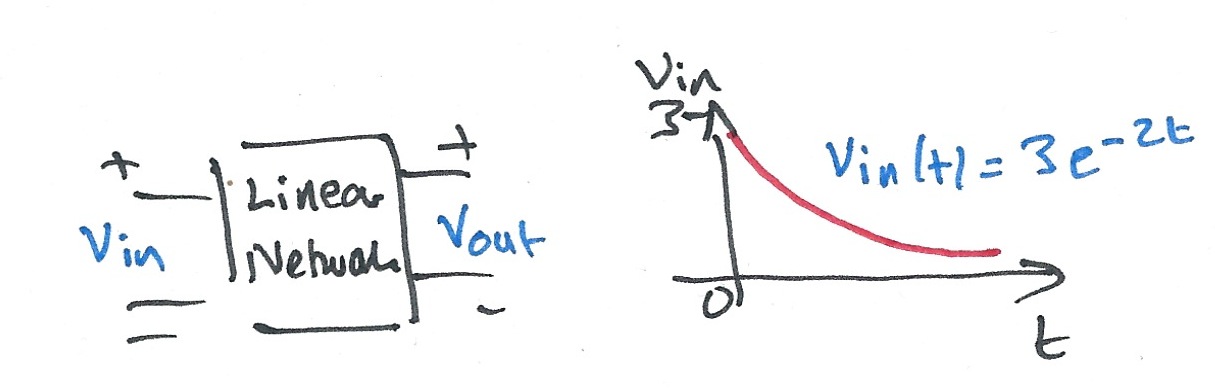 +
Vin
-
Linear
Network
+
Vout
-
Vin
3
Vin(t) = 3e^-2t
0
t